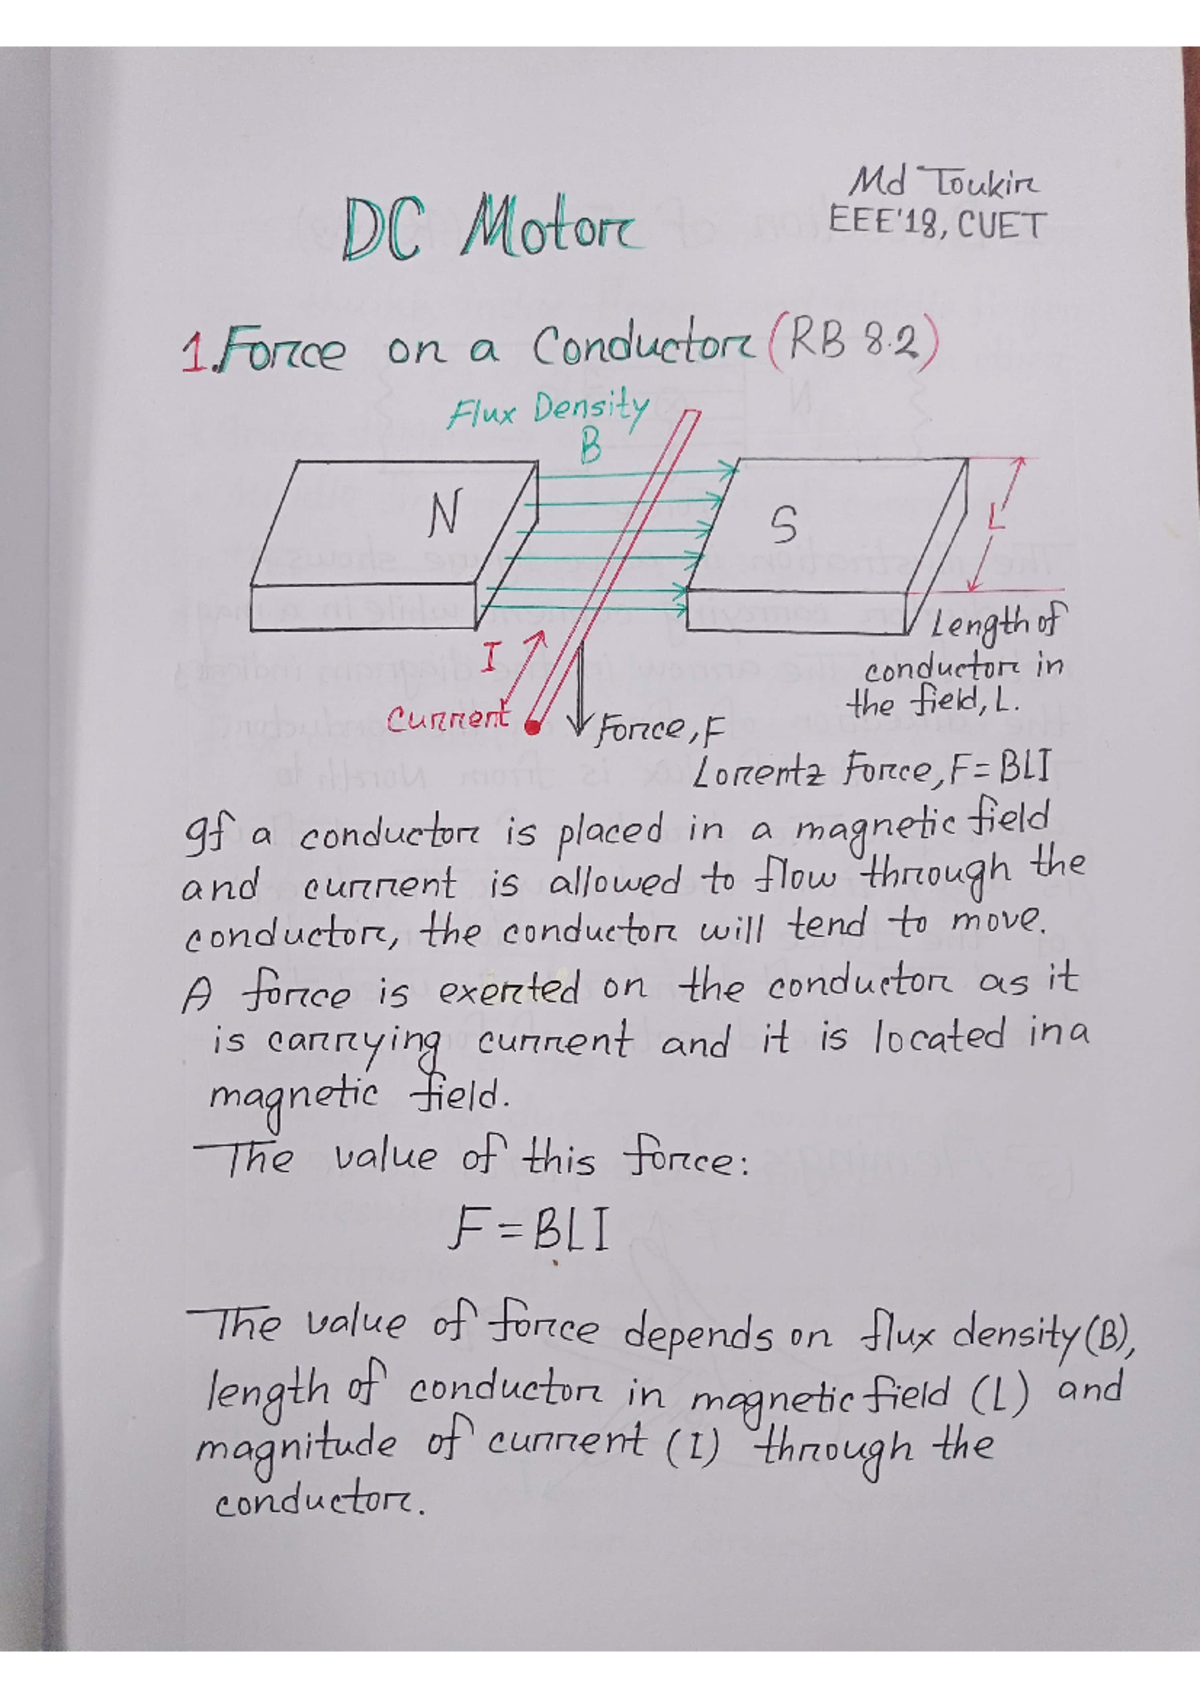 Md Toukir
EEE'18, CUET
DC Motor
1. Force on a Conductor (RB 8.2)
Flux Density
B
N
S
L
I
Current
Force, F
Length of
conductor in
the field, L.
Lorentz Force, F = BLI
If a conductor is placed in a magnetic field
and current is allowed to flow through the
conductor, the conductor will tend to move.
A force is exerted on the conductor as it
is carrying current and it is located in a
magnetic field.
The value of this force:
F = BLI
The value of force depends on flux density (B),
length of conductor in magnetic field (L) and
magnitude of current (I) through the
conductor.